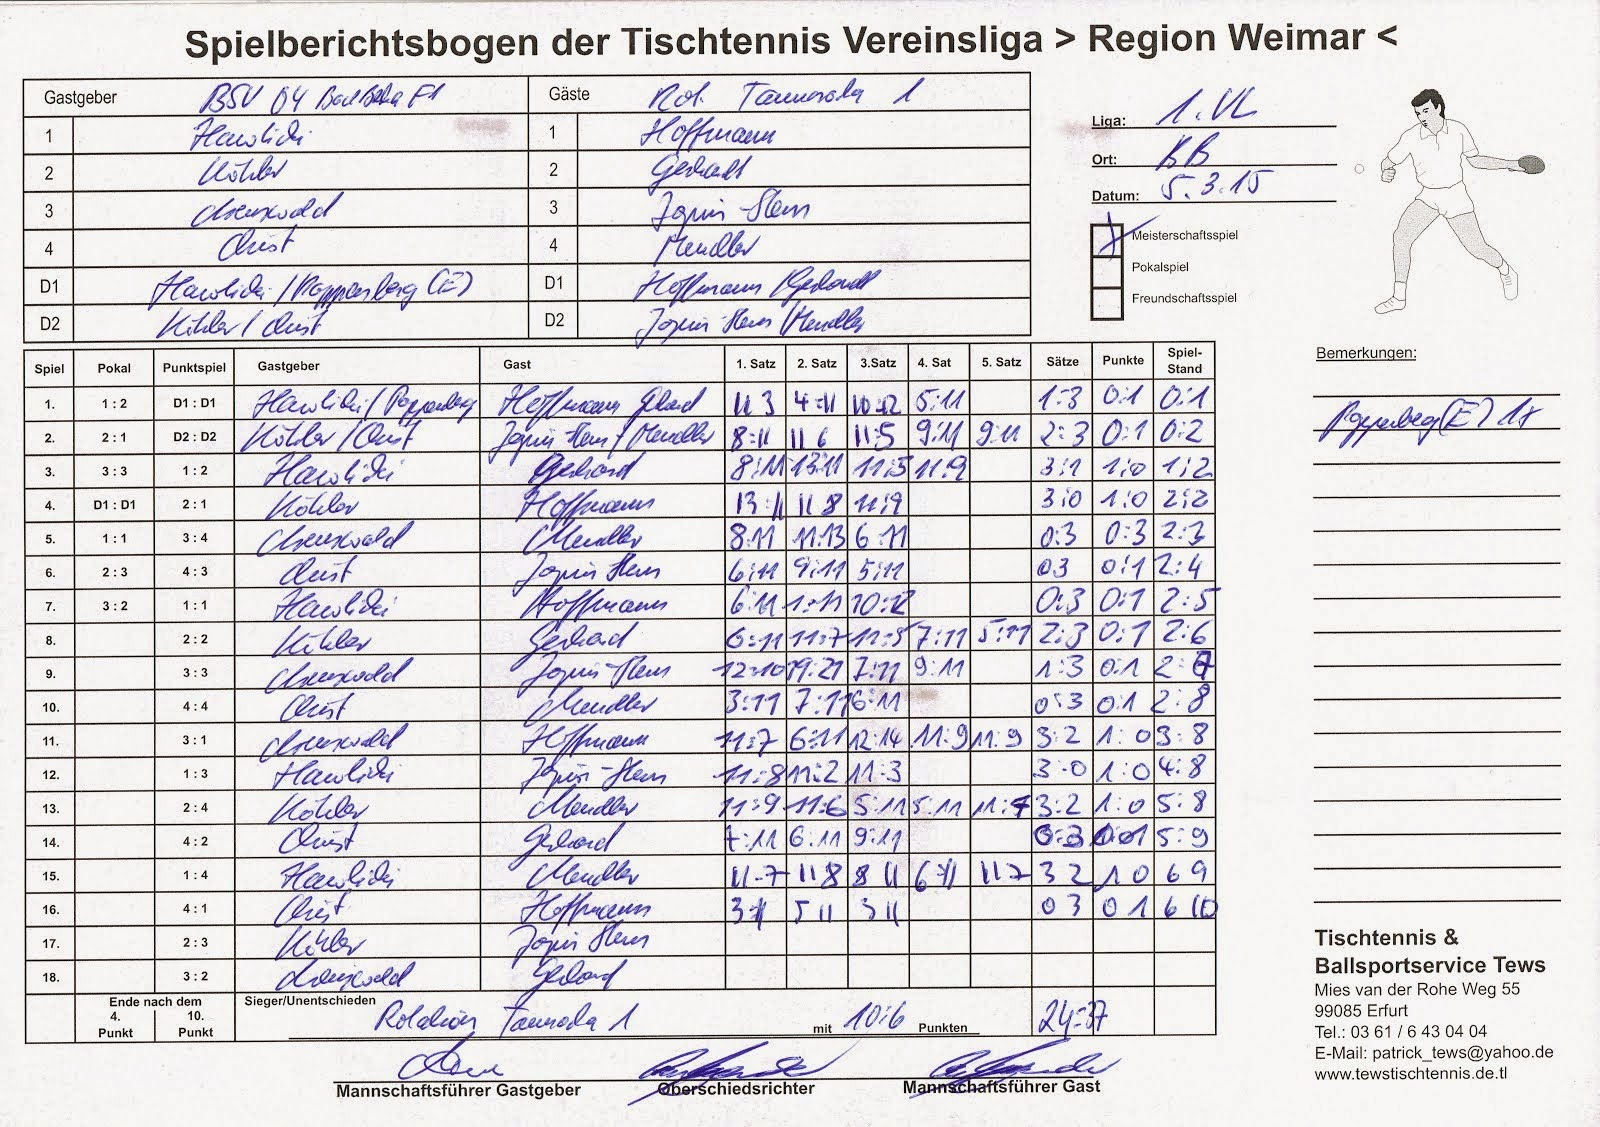 Spielberichtsbogen der Tischtennis Vereinsliga > Region Weimar <
Gastgeber BSV 04 Bad Berka E1 Gäste Rot. Tannroda 1
1 Hawlicki 1 Hoffmann
2 Köhler 2 Gerhard
3 3
4 Christ 4 Mendler
D1 Hawlicki / Poppenberg (E) D1 Hoffmann / Gerhard
D2 Köhler / Christ D2 / Mendler
Liga: 1. VL
Ort: BB
Datum: 5.3.15
X Meisterschaftsspiel
Pokalspiel
Freundschaftsspiel
Bemerkungen:
Poppenberg (E) 1x
Spiel Pokal Punktspiel Gastgeber Gast 1. Satz 2. Satz 3.Satz 4. Sat 5. Satz Sätze Punkte Spiel-Stand
1. 1 : 2 D1 : D1 Hawlicki / Poppenberg Hoffmann Gerhard 11 3 4:11 10:12 5:11 1:3 0:1 0:1
2. 2 : 1 D2 : D2 Köhler / Christ / Mendler 8:11 11 6 11:5 9:11 9:11 2:3 0:1 0:2
3. 3 : 3 1 : 2 Hawlicki Gerhard 8:11 13:11 11:5 11:9 3:1 1:0 1:2
4. D1 : D1 2 : 1 Köhler Hoffmann 13:11 11 8 11:9 3:0 1:0 2:2
5. 1 : 1 3 : 4 Mendler 8:11 11:13 6:11 0:3 0:3 2:3
6. 2 : 3 4 : 3 Christ 6:11 9:11 5:11 03 0:1 2:4
7. 3 : 2 1 : 1 Hawlicki Hoffmann 6:11 1:11 10:12 0:3 0:1 2:5
8. 2 : 2 Köhler Gerhard 6:11 11:7 11:5 7:11 5:11 2:3 0:1 2:6
9. 3 : 3 12:10 19:21 7:11 9:11 1:3 0:1 2:7
10. 4 : 4 Christ Mendler 3:11 7:11 6:11 0:3 0:1 2:8
11. 3 : 1 Hoffmann 11:7 6:11 12:14 11:9 11:9 3:2 1:0 3:8
12. 1 : 3 Hawlicki 11:8 11:2 11:3 3:0 1:0 4:8
13. 2 : 4 Köhler Mendler 11:9 11:6 5:11 5:11 11:7 3:2 1:0 5:8
14. 4 : 2 Christ Gerhard 7:11 6:11 9:11 0:3 0:1 5:9
15. 1 : 4 Hawlicki Mendler 11-7 11 8 8 11 6:11 11 7 3 2 1 0 6 9
16. 4 : 1 Christ Hoffmann 3:11 5 11 3 11 0 3 0 1 6 10
17. 2 : 3 Köhler
18. 3 : 2 Gerhard
Ende nach dem
4. Punkt 10. Punkt
Sieger/Unentschieden Rotation Tannroda 1 mit 10:6 Punkten 24:37
Mannschaftsführer Gastgeber Oberschiedsrichter Mannschaftsführer Gast
Tischtennis &
Ballsportservice Tews
Mies van der Rohe Weg 55
99085 Erfurt
Tel.: 03 61 / 6 43 04 04
E-Mail: patrick_tews@yahoo.de
www.tewstischtennis.de.tl